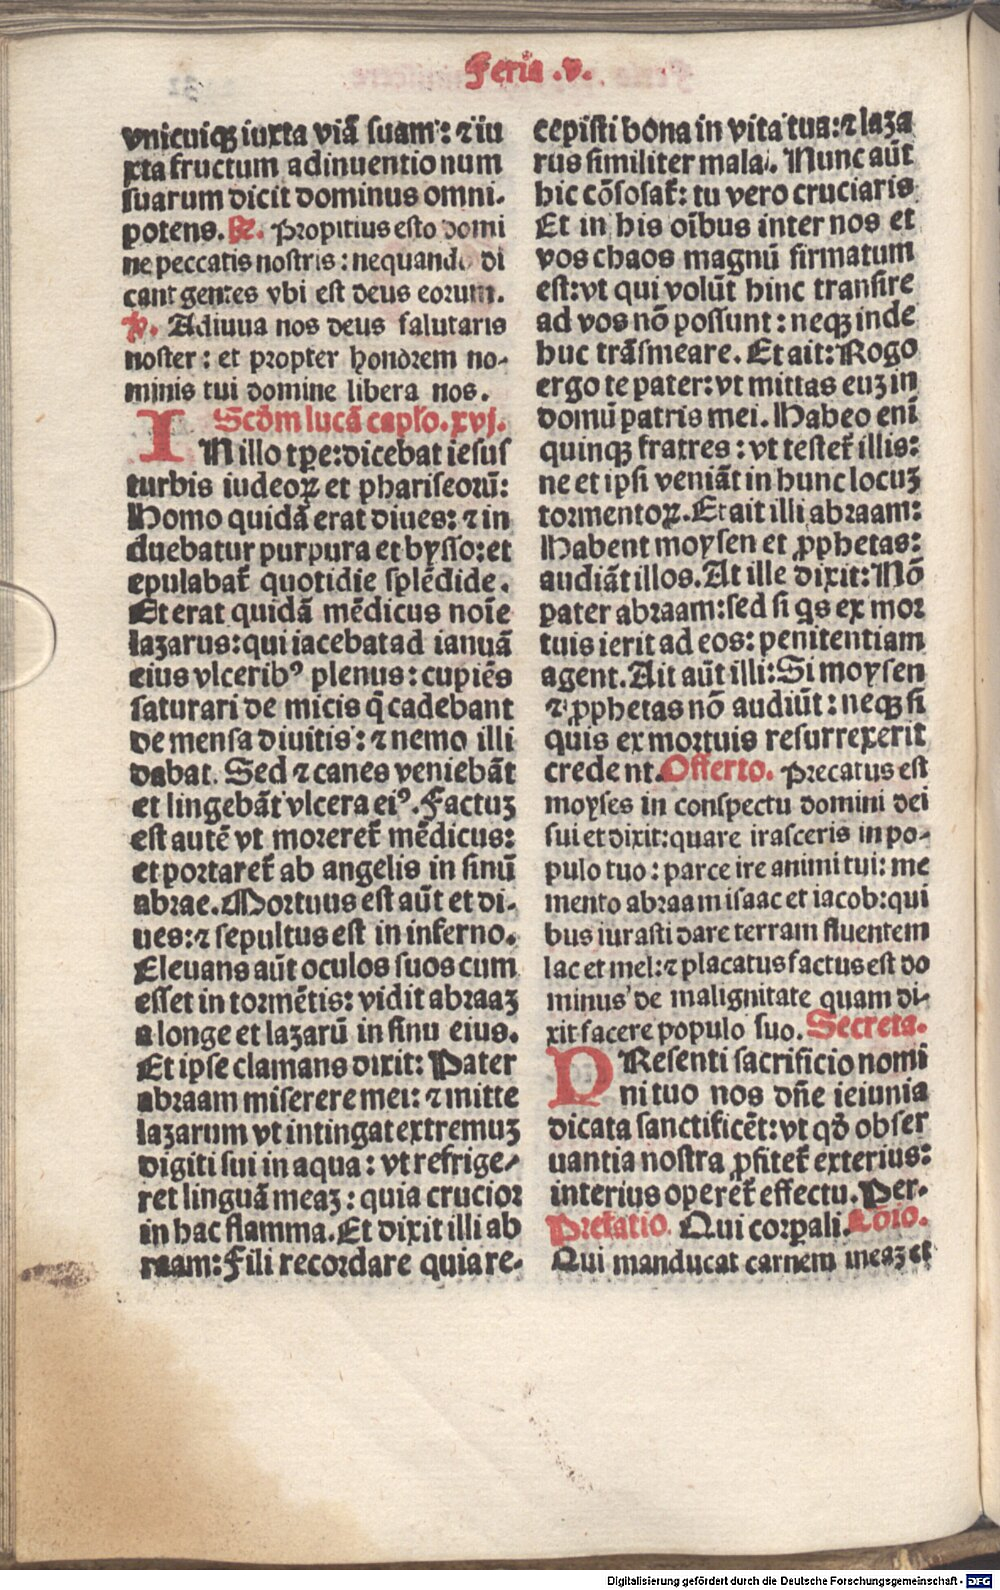 Feria .v.
vnicuiqꝫ iuxta viã suam: ⁊ iu
xta fructum adinuentio num
suarum dicit dominus omni-
potens. Propitius esto domi
ne peccatis nostris: nequando di
cant gentes vbi est deus eorum.
℣. Adiuua nos deus salutaris
noster: et propter honorem no-
minis tui domine libera nos.
Scd̃m lucã caplo. xvj.
IN illo tpe: dicebat iesus
turbis iudeoꝝ et phariseorũ:
Homo quidã erat diues: ⁊ in
duebatur purpura et bysso: et
epulabat̃ quotidie splẽdide.
Et erat quidã mẽdicus noĩe
lazarus: qui iacebat ad ianuã
eius vlceribꝰ plenus: cupiẽs
saturari de micis q̃ cadebant
de mensa diuitis: ⁊ nemo illi
dabat. Sed ⁊ canes veniebãt
et lingebãt vlcera eiꝰ. Factuꝫ
est autẽ vt moreret̃ mẽdicus:
et portaret̃ ab angelis in sinũ
abrae. Mortuus est aũt et di-
ues: ⁊ sepultus est in inferno.
Eleuans aũt oculos suos cum
esset in tormẽtis: vidit abraaꝫ
a longe et lazarũ in sinu eius.
Et ipse clamans dixit: Pater
abraam miserere mei: ⁊ mitte
lazarum vt intingat extremuꝫ
digiti sui in aqua: vt refrige-
ret linguã meaꝫ: quia crucior
in hac flamma. Et dixit illi ab
raam: Fili recordare quia re-
cepisti bona in vita tua: ⁊ laza
rus similiter mala. Nunc aũt
hic cõsolat̃: tu vero cruciaris
Et in his oĩbus inter nos et
vos chaos magnũ firmatum
est: vt qui volũt hinc transire
ad vos nõ possunt: neqꝫ inde
huc trãsmeare. Et ait: Rogo
ergo te pater: vt mittas euꝫ in
domũ patris mei. Habeo eni
quinqꝫ fratres: vt testet̃ illis:
ne et ipsi veniãt in hunc locuꝫ
tormentoꝝ. Et ait illi abraam:
Habent moysen et ꝓphetas:
audiãt illos. At ille dixit: Nõ
pater abraam: sed si qs ex mor
tuis ierit ad eos: penitentiam
agent. Ait aũt illi: Si moysen
⁊ ꝓphetas nõ audiũt: neqꝫ si
quis ex mortuis resurrexerit
crede nt. Offerto. Precatus est
moyses in conspectu domini dei
sui et dixit: quare irasceris in po-
pulo tuo: parce ire animi tui: me
mento abraam isaac et iacob: qui
bus iurasti dare terram fluentem
lac et mel: ⁊ placatus factus est do
minus de malignitate quam di-
xit facere populo suo. Secreta.
PResenti sacrificio nomi
ni tuo nos dñe ieiunia
dicata sanctificẽt: vt qd̃ obser
uantia nostra ꝓfitet̃ exterius:
interius operet̃ effectu. Per.
Prefatio. Qui corꝑali. Cõio.
Qui manducat carnem meaꝫ et
Digitalisierung gefördert durch die Deutsche Forschungsgemeinschaft - DFG